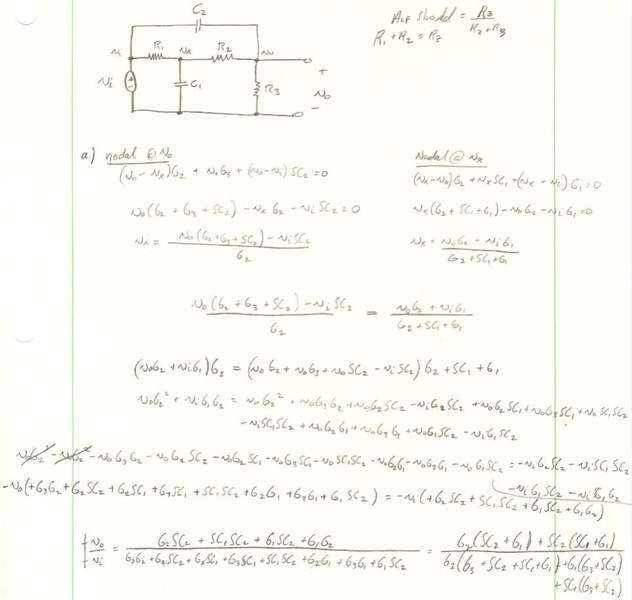 C₂
R₁ Vx R₂
Vi Vo
C₁ R₃
Vi
+
Vo
-
R₃
R₂+R₃
R₁ + R₂ = R₃
a.) nodal @ Vo
(Vo - Vx)G₂ + VoG₃ + (Vo-Vi)SC₂=0
Vo(G₂ + G₃ + SC₂) - Vx G₂ - Vi SC₂=0
Vx = Vo(G₂+G₃+SC₂) - ViSC₂
G₂
Nodal @ Vx
(Vx-Vo)G₂ + VxSC₁ + (Vx - Vi)G₁=0
Vx(G₂+SC₁+G₁) - VoG₂ - ViG₁=0
Vx = VoG₂ + ViG₁
G₂+SC₁+G₁
Vo(G₂ + G₃ + SC₂) - ViSC₂ = VoG₂ + ViG₁
G₂ G₂+SC₁+G₁
(VoG₂ + ViG₁)G₂ = (VoG₂ + VoG₃ + VoSC₂ - ViSC₂) G₂ + SC₁ + G₁
VoG₂² + ViG₁G₂ = VoG₂² + VoG₃G₂ + VoG₂SC₂ - ViG₂SC₂ + VoG₂SC₁ + VoG₃SC₁ + VoSC₁SC₂
- ViSC₁SC₂ + VoG₂G₁ + VoG₃G₁ + VoG₁SC₂ - ViG₁SC₂
- VoG₃G₂ - VoG₂SC₂ - VoG₂SC₁ - VoG₃SC₁ - VoSC₁SC₂ - VoG₂G₁ - VoG₃G₁ - VoG₁SC₂ = -ViG₂SC₂ - ViSC₁SC₂
- ViG₁SC₂ - ViG₁G₂
-Vo(+G₃G₂ + G₂SC₂ + G₂SC₁ + G₃SC₁ + SC₁SC₂ + G₂G₁ + G₃G₁ + G₁SC₂) = -Vi(+G₂SC₂ + SC₁SC₂ + G₁SC₂ + G₁G₂)
Vo = G₂SC₂ + SC₁SC₂ + G₁SC₂ + G₁G₂ = G₂(SC₂ + G₁) + SC₂(SC₁ + G₁)
Vi G₃G₂ + G₂SC₂ + G₂SC₁ + G₃SC₁ + SC₁SC₂ + G₂G₁ + G₃G₁ + G₁SC₂ G₂(G₃ + SC₂ + SC₁ + G₁) + G₁(G₃+SC₂)
+ SC₁(G₃+SC₂)